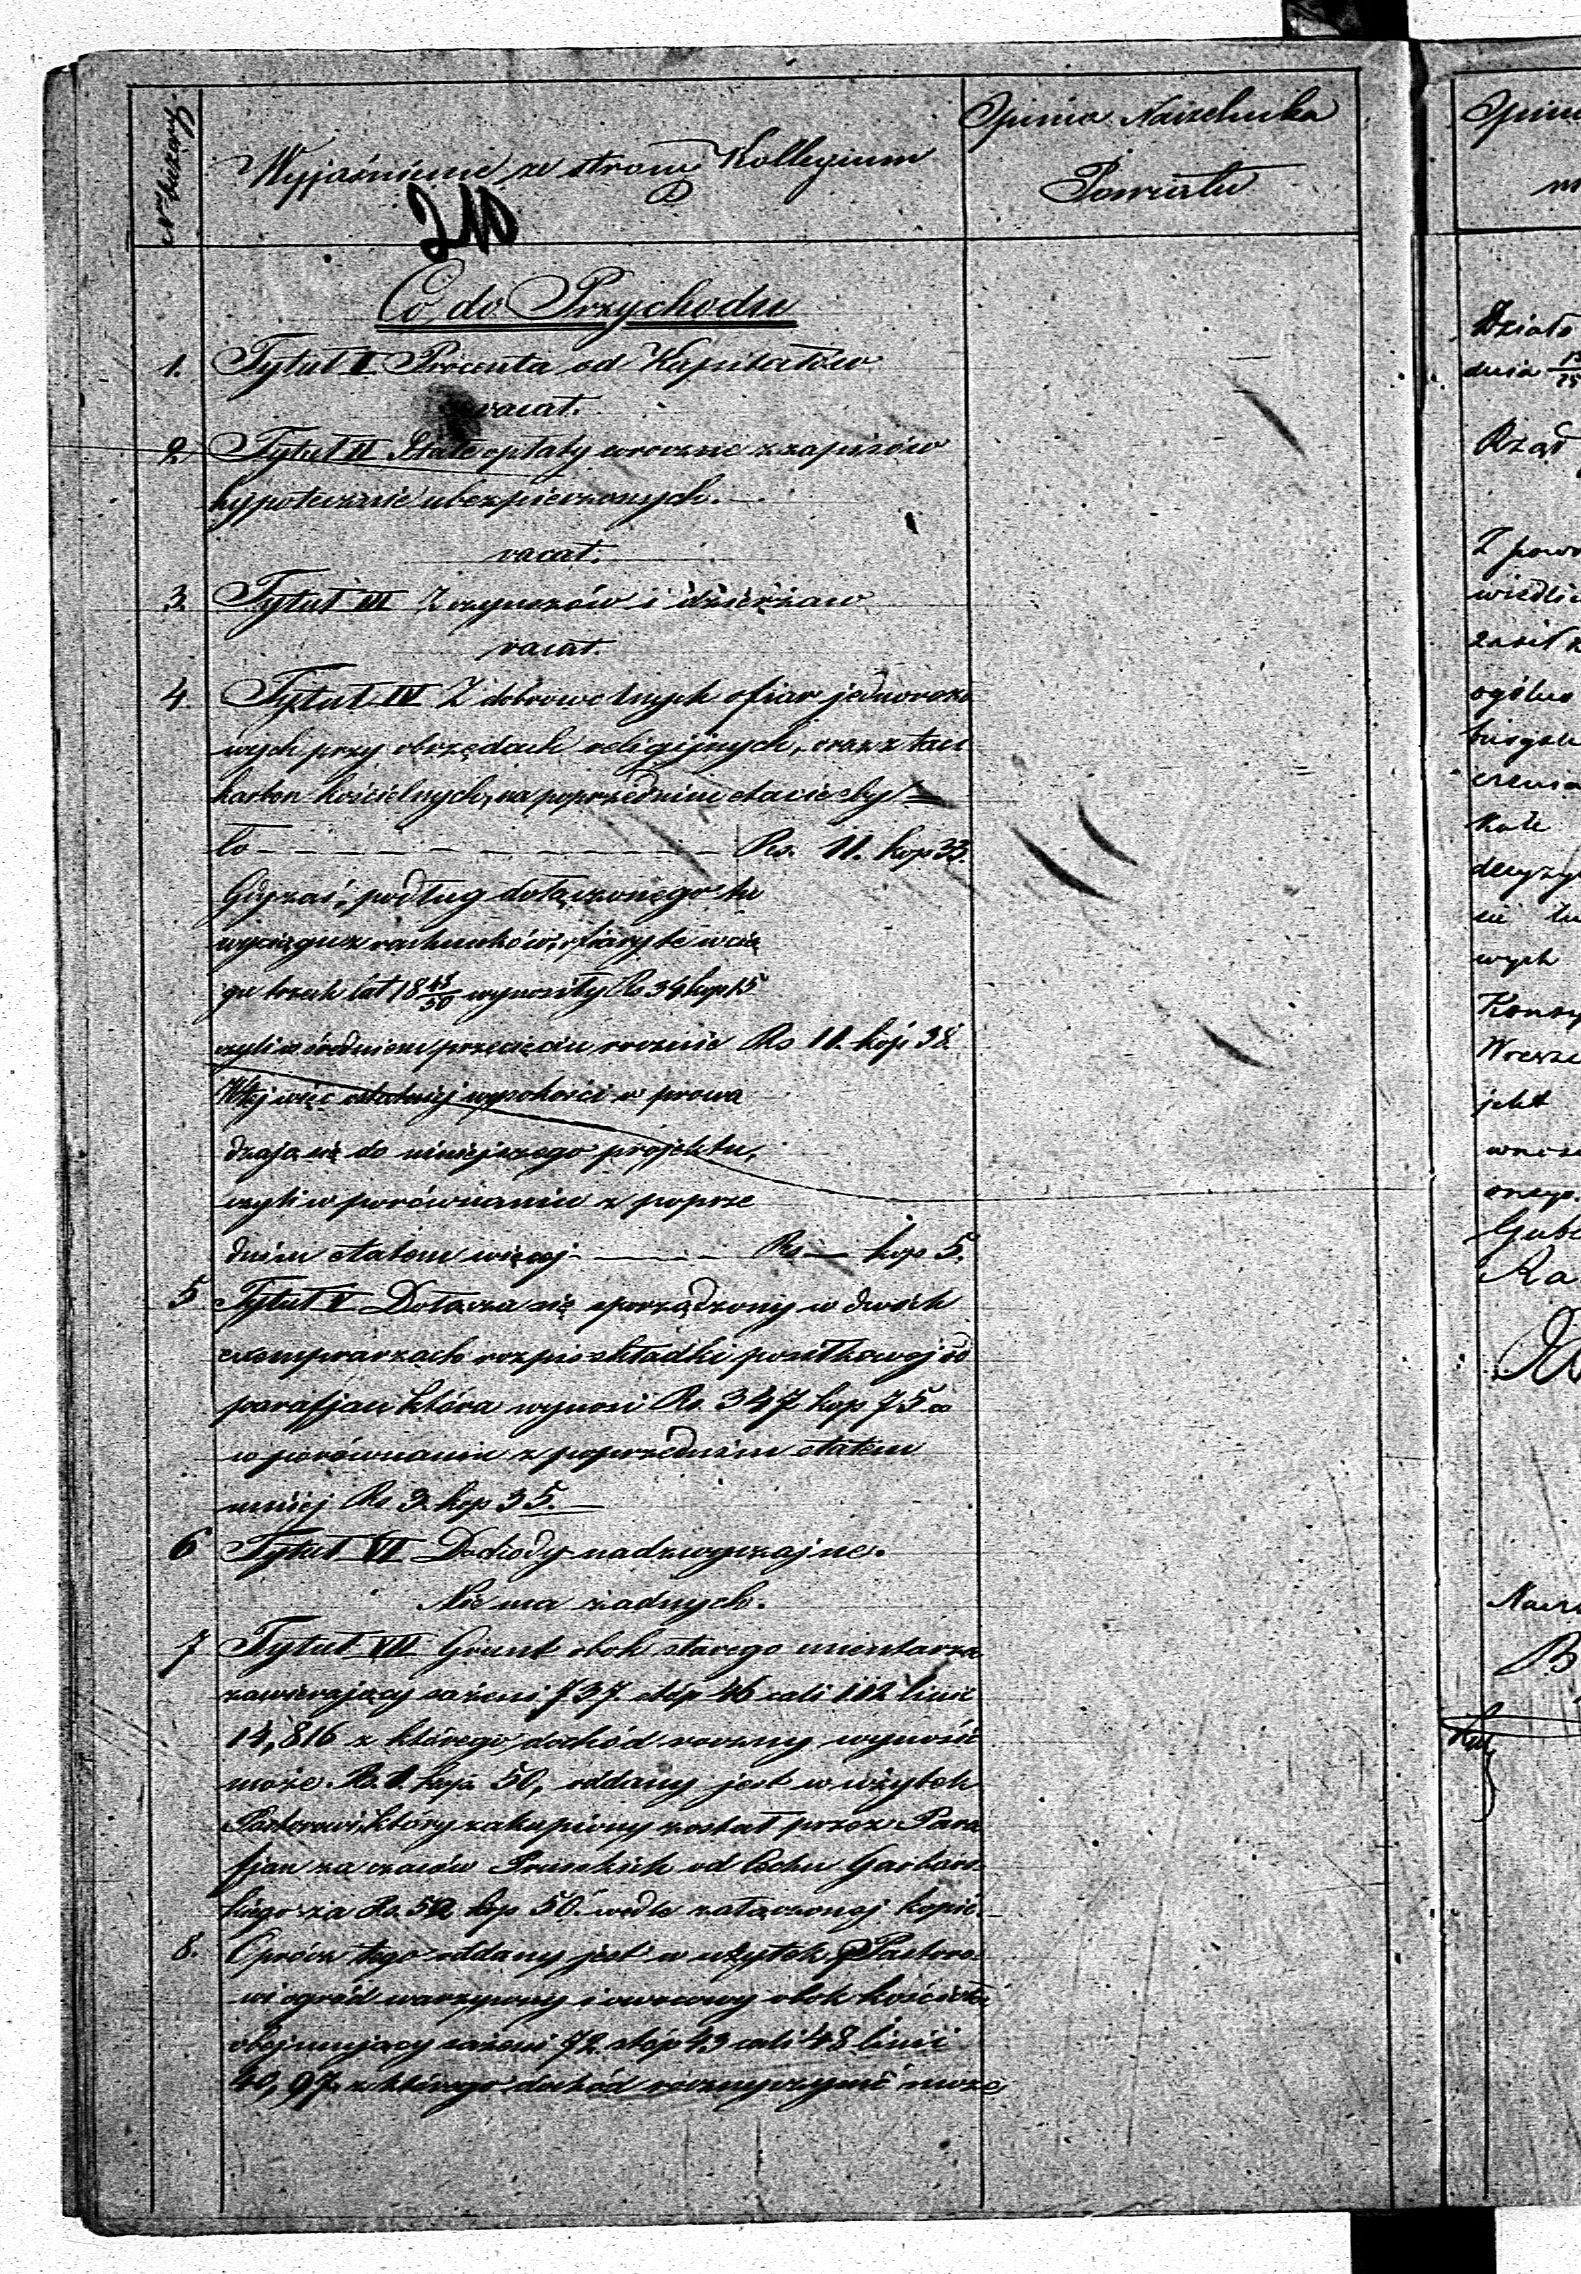 Nro bieżący
Wyjaśnienie ze strony Kollegium
Opinia Naczelnika
Powiatu
210
Co do Przychodu
1. Tytuł I Procenta od Kapitałów
vacat.
2. Tytuł II Stałe opłaty coroczne z zapisów
hypotecznie ubezpieczonych.
vacat.
3. Tytuł III Z czynszów i dzierżaw
vacat.
4. Tytuł IV Z dobrowolnych ofiar jednorazo
wych przy obrzędach religijnych, oraz z tac i
karbon kościelnych, na poprzednim etacie by
ło Rs. 11. kop 33.
Gdy zaś, podług dołączonego tu
wyciągu z rachunków, ofiary te w cią
gu trzech lat 18 48/50 wynosiły Rs 34 kop 15
czyli w średniem przecięciu rocznie Rs 11. kop 38.
W tej więc ostatniej wysokości w prowa
dzają się do niniejszego projektu,
czyli w porównaniu z poprze
dnim etatem więcej Rs — kop 5.
5 Tytuł V Dołącza się sporządzony w dwóch
exemplarzach rozpis składki posiłkowej od
parafjan która wynosi Rs. 347 kop 75 a
w porównaniu z poprzednim etatem
mniej Rs 3. kop 35.
6 Tytuł VI Dochody nadzwyczajne.
Nie ma żadnych.
7 Tytuł VII Grunt obok starego cmentarza
zawierający sążeni 737. stóp 46 cali 112 linii
14,816 z którego dochód roczny wynosić
może Rs. 1. kop. 50, oddany jest w użytek
Pastorowi, który zakupiony został przez Para
fjan za czasów Pruskich od Cechu Garbars
kiego za Rs. 52 kop 50. wedle załączonej kopii.
8. Oprócz tego oddany jest w użytek Pastoro
wi ogród warzywny i owocowy obok kościoła
obejmujący sążeni 72 stóp 43 cali 48 linii
40,97. z którego dochód roczny czynić może
Działo
dnia
Rząd
Z powo
ogólne
wych
Guber